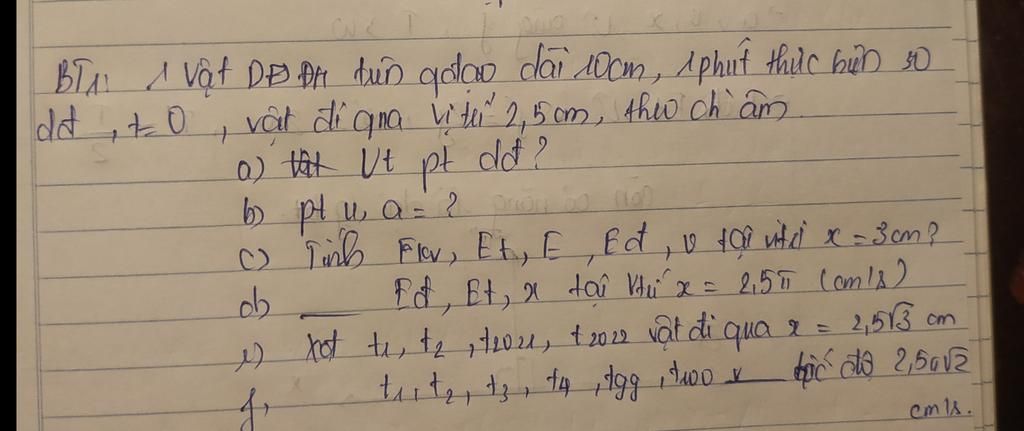 BT1: 1 vật DĐ ĐH trên qđạo dài 10cm, 1 phút thực hiện 30
dđ, t=0, vật đi qua vị trí 2,5cm, theo ch âm
a) Vt pt dđ?
b) pt v, a = ?
c) Tính Fkv, Et, E, Eđ, v tại vtrí x = 3cm?
d) Eđ, Et, x tại vtrí x = 2,5π (cm/s)
e) xđ t1, t2, t2021, t2022 vật đi qua x = 2,5√3 cm
f, t1, t2, t3, t4, t99, t100 v tốc độ 2,5π√2
cm/s.